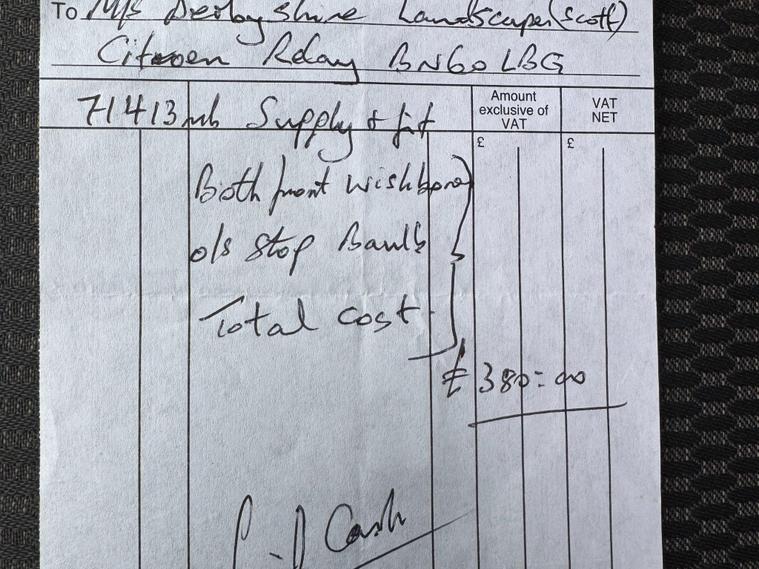 To M/s Derbyshire Landscapes (Scott)
Citroen Relay BN60 LBG
71413 mls Supply & fit
Amount exclusive of VAT
VAT NET
£ £
Both front wishbone
o/s stop Baulb
Total cost
£ 380=00
Cash